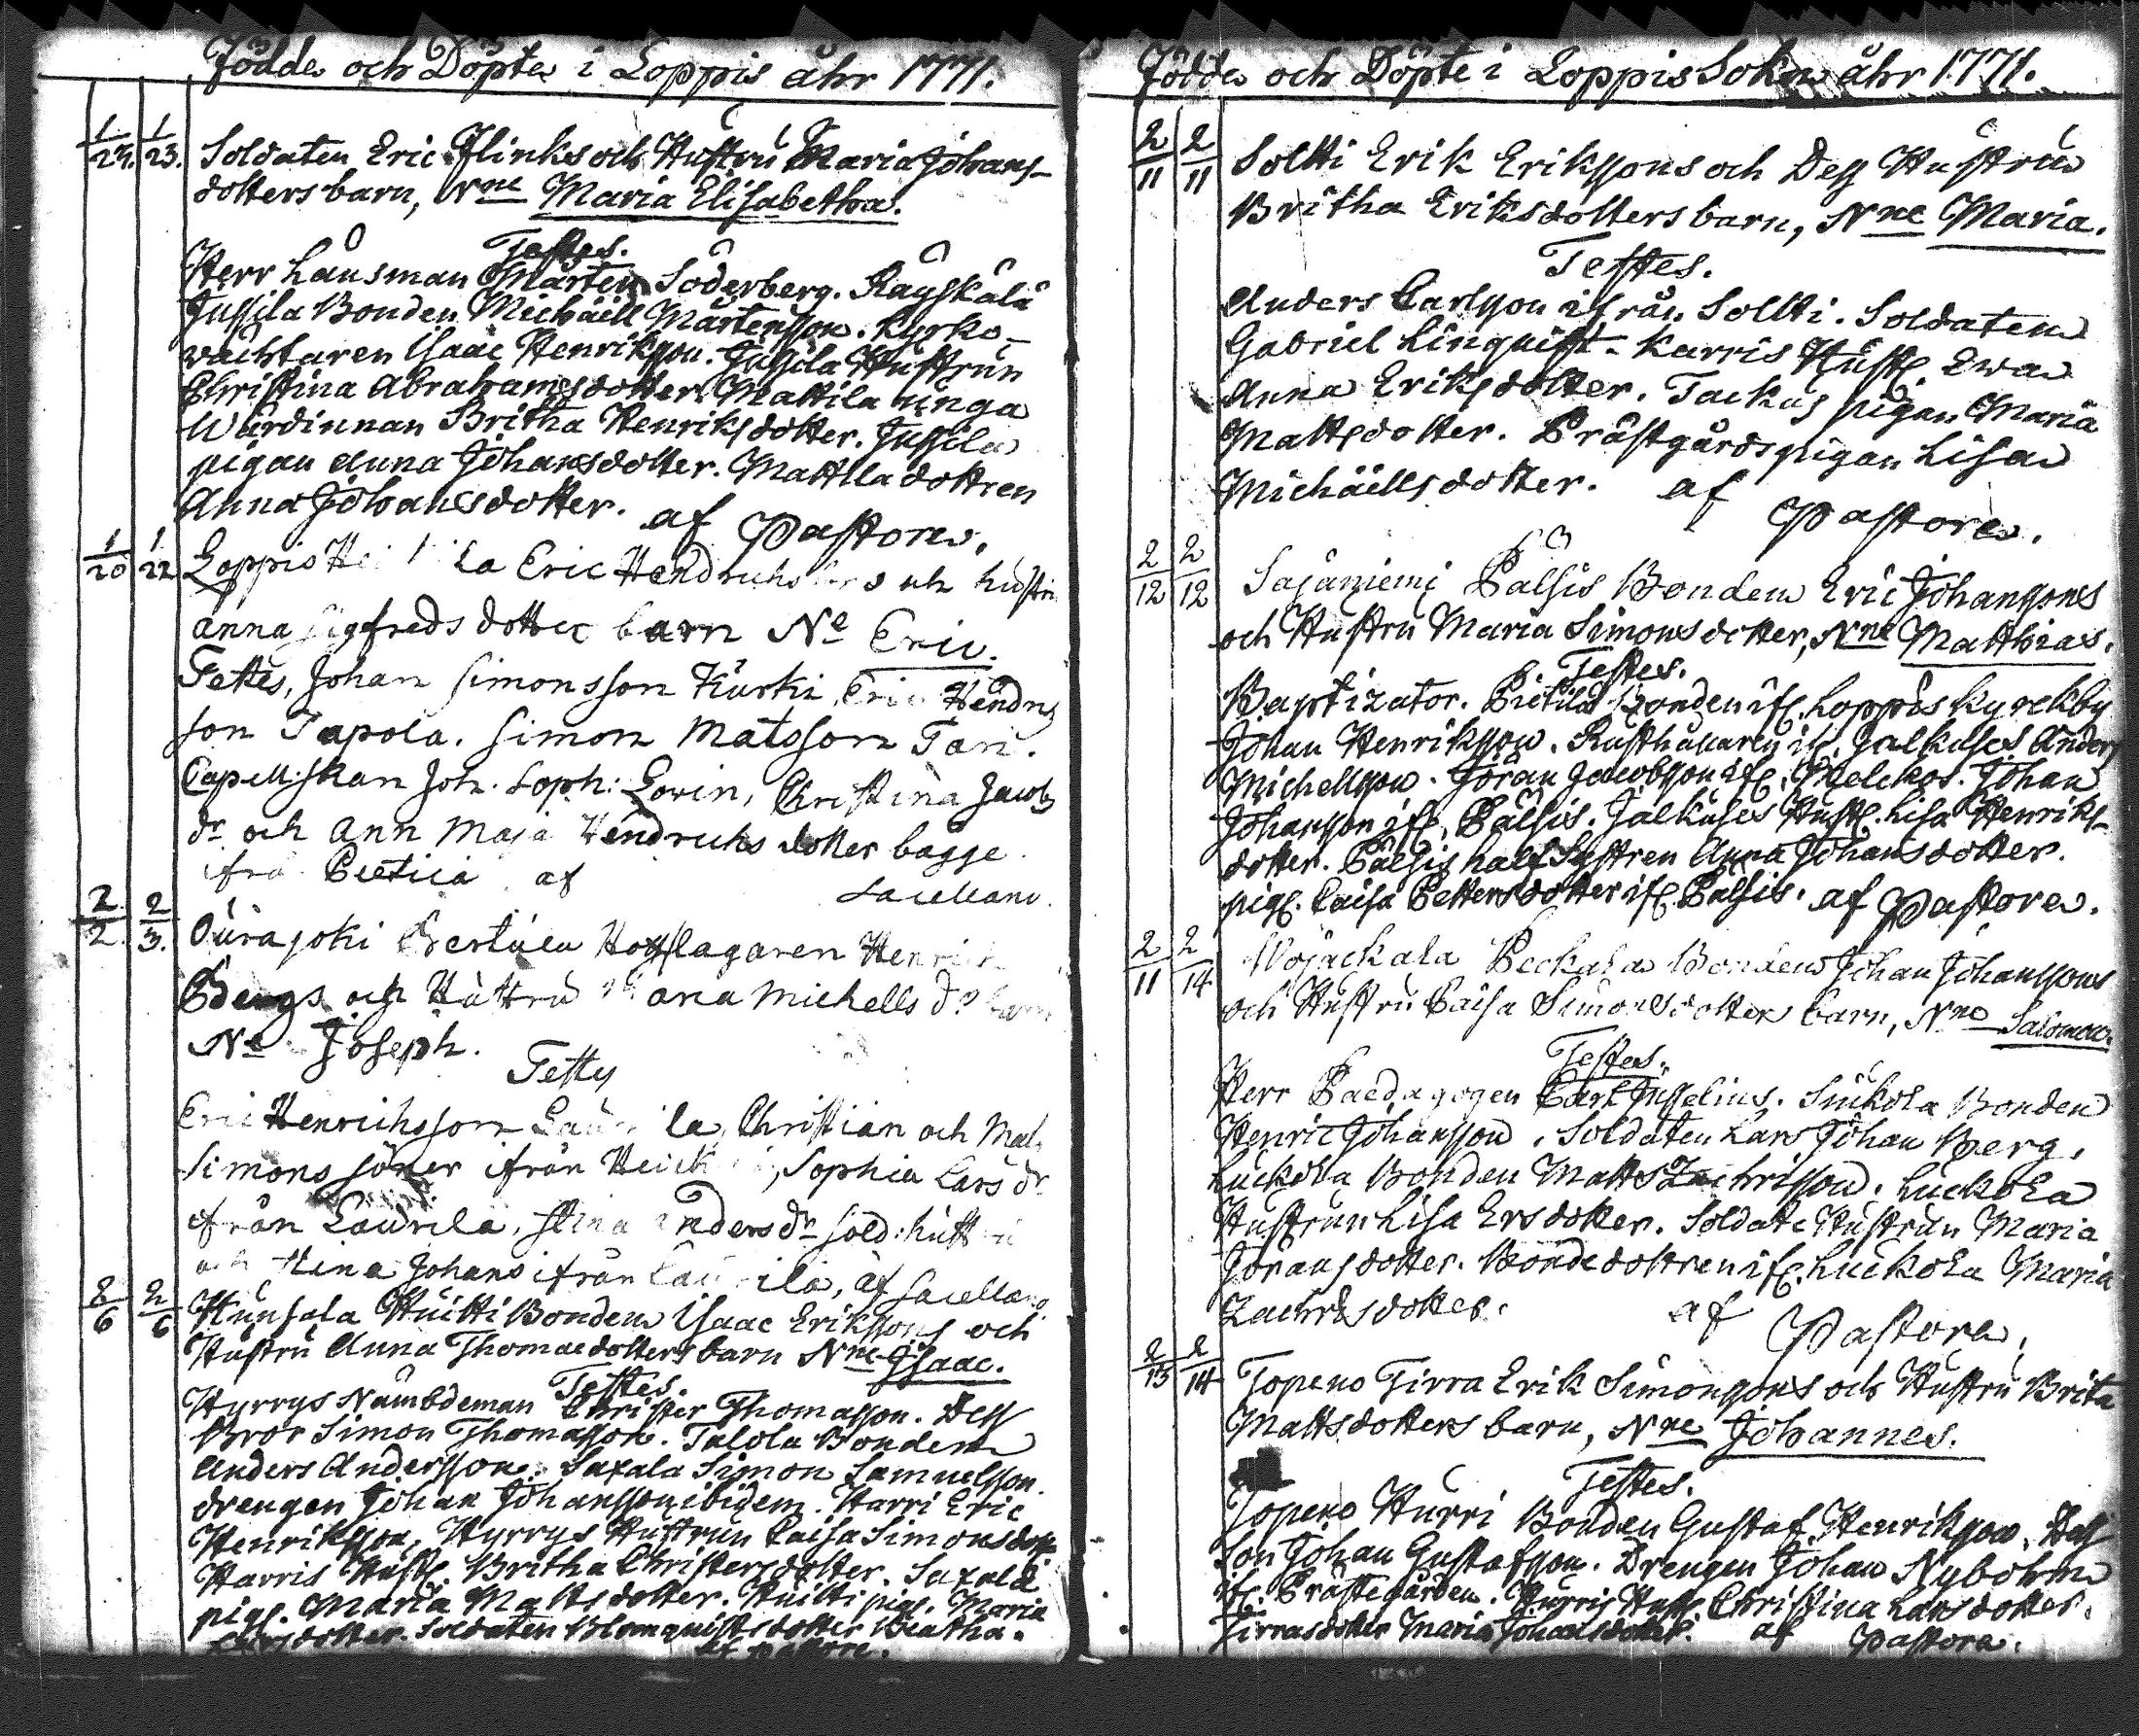 Födde och Döpte i Loppis åhr 1771.
1/23. 1/23. Soldaten Eric Flinks och Hustru Maria Johans-
dotters barn, Nne Maria Elisabetha.
Testes.
Herr Länsman Mårten Söderberg. Räyskälä
Jussila Bonden Michaell Mårtensson. Kyrko-
wächtaren Isaac Henriksson. Jussila Hustrun
Christina Abrahamsdotter. Mattila unga
Wärdinnan Britha Henriksdotter. Jussila
pigan Anna Johansdotter. Mattila dottren
Anna Johansdotter. af Pastore.
1/20 1/22 Loppis la Eric Hendrichs och hustru
Anna Sigfreds dotter barn Ne Eric.
Testes, Johan Simonsson Kurki, Eric Hendrs
son Tapola. Simon Matsson Tari.
Capell:skan Joh. Soph: Lovin, Christina Jacobs
dr och Ann Maja Hendrichs dotter bägge
ifrå Pietilä af Sacellano.
2/2. 2/3. Ourajoki Perttula Hofslagaren Henrich
Bergs och Hustru Maria Michells dr barn
Ne Joseph.
Testes
Eric Henrichsson Laurila, Christian och Mats
Simons söner ifrån , Sophia Lars dr
ifrån Laurila, Stina Anders dr sold: hustru
och Stina Johans ifrån Laurila, af Sacellano
2/6 2/6 Hunsala Huitti Bonden Isaac Erikssons och
Hustru Anna Thomaedotters barn Nne Isaac.
Testes.
Hyrrys Nämbdeman Christer Thomasson. Dess
Bror Simon Thomasson. Talola Bonden
Anders Andersson. Saxala Simon Samuelsson.
drengen Johan Johansson ibidem. Harri Eric
Henriksson, Hyrrys Hustrun Caisa Simonsdott
Harris Hust. Britha Christersdotter. Saxala
pig. Maria Mattsdotter. Huitti pig. Maria
Larsdotter. Soldaten Blomquists dotter Beatha.
af Pastore.
Födde och Döpte i Loppis Sokn åhr 1771.
2/11 2/11 Soltti Erik Erikssons och Dess Hustru
Britha Eriksdotters barn, Nne Maria.
Testes.
Anders Carlsson ifrån Sollti. Soldaten
Gabriel Linquist. Karris Hust. Ewa
Anna Eriksdotter. Tackus pigan Maria
Mattsdotter. Prästgårds pigan Lisa
Michaëllsdotter. af Pastore.
2/12 2/12 Sajäniemi Pälsis Bonden Eric Johanssons
och Hustru Maria Simonsdotter, Nne Matthias.
Testes.
Baptizator. Pietilä Bonden if. Loppis Kyrckby
Johan Henriksson. Rusthållaren if. Jalkuses Anders
Michellsson. Jöran Jacobsson if. Melckos. Johan
Johansson if. Pälsis. Jalkuses Hust. Lisa Henriks-
dotter. Pälsis half Systren Anna Johansdotter.
pig. Caisa Pettersdotter if. Pälsis. af Pastore.
2/11 2/14 Wojackala Peckala Bonden Johan Johanssons
och Hustru Caisa Simonsdotter barn, Nne Salomon.
Testes.
Herr Paedagogen Carl Jusselius. Siukola Bonden
Henric Johansson. Soldaten Lars Johan Berg.
Luckola Bonden Matts Zachrisson. Luckola
Hustrun Lisa Ersdotter. Soldate Hustrun Maria
Jöransdotter. Bondedottren if. Luckola Maria
Zachrisdotter. af Pastore.
2/13 2/14 Topeno Tirra Erik Simonssons och Hustru Brita
Mattsdotters barn, Nne Johannes.
Testes.
Topeno Hurri Bonden Gustaf Henriksson. Dess
Son Johan Gustafsson. Drengen Johan Nybohm
if. Prästegården. Hurris Hust. Christina Larsdotter.
Tirrasdotter Maria Johansdotter. af Pastore.